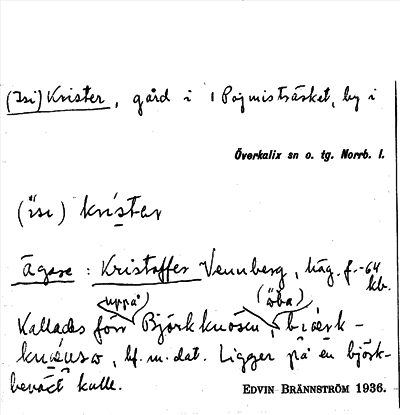 (Isi) Krister, gård i Pojmisträsket, by i
Överkalix sn o. tg. Norrb. l.
(ısı) krıstər
Ägare: Kristoffer Vennberg, häg. f. -64
kb.
<uppå> (åba)
Kallades förr Björkknösen, biœrk-
knœ́usn, bf. m. dat. Ligger på en björk-
beväxt kulle.
EDVIN BRÄNNSTRÖM 1936.